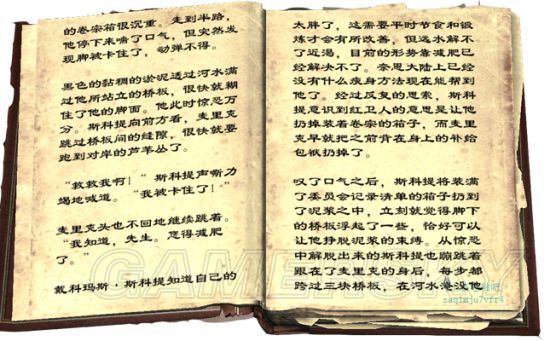 的卷宗箱很沉重。走到半路，
他停下来喘了口气，但突然发
现脚被卡住了，动弹不得。
黑色的黏稠的淤泥透过河水满
过他所站立的桥板，很快就糊
住了他的脚面。他此时惊恐万
分。斯科提向前方看，麦里克
跳过桥板间的缝隙，很快就要
跑到对岸的芦苇丛了。
“救救我啊！”斯科提声嘶力
竭地喊道。“我被卡住了！”
麦里克头也不回地继续跳着。
“我知道，先生。您得减肥
了。”
戴科玛斯·斯科提知道自己的
太胖了，这需要平时节食和锻
炼才会有所改善，但远水解不
了近渴，目前的形势靠减肥已
经解决不了。奈恩大陆上已经
没有什么瘦身方法现在能帮到
他了。经过反复的思索，斯科
提意识到红卫人的意思是让他
扔掉装着卷宗的箱子，而麦里
克早就把之前背在身上的补给
包袱扔掉了。
叹了口气之后，斯科提将装满
了委员会记录清单的箱子扔到
了泥浆之中，立刻就觉得脚下
的桥板浮起了一些，恰好可以
让他挣脱泥浆的束缚。从惊恐
中解脱出来的斯科提也蹦跳着
跟在了麦里克的身后，每步都
跨过三块桥板，在河水淹没他
GAMERSKY
zaq1mju7vfr4